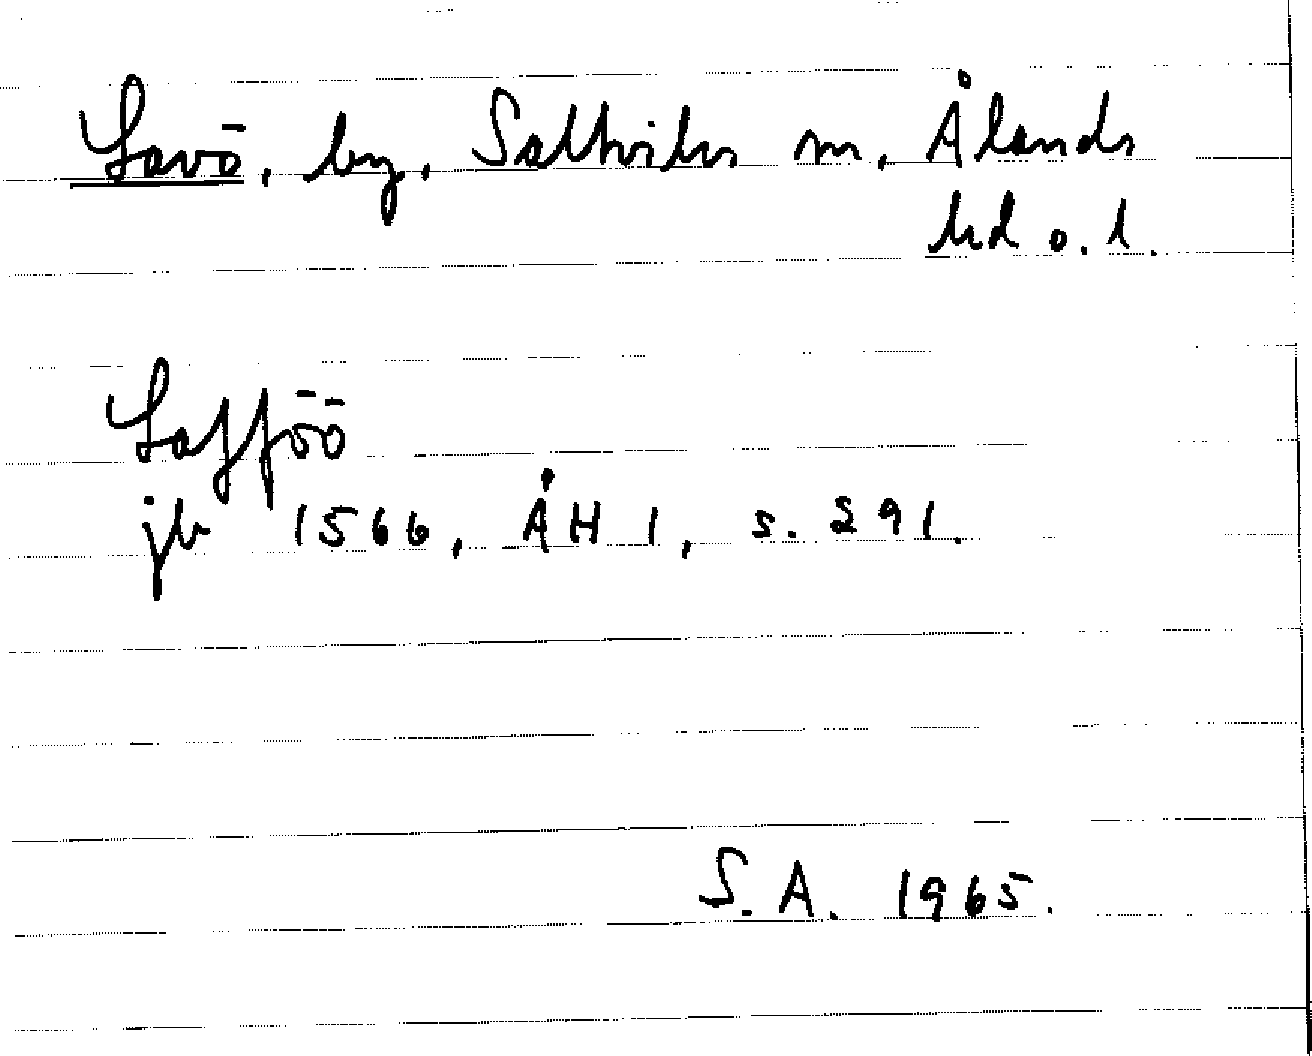 Lavö, by, Saltviks sn, Ålands
hd o. l.
Lafföö
jb 1566, ÅH 1, s. 291.
S. A. 1965.